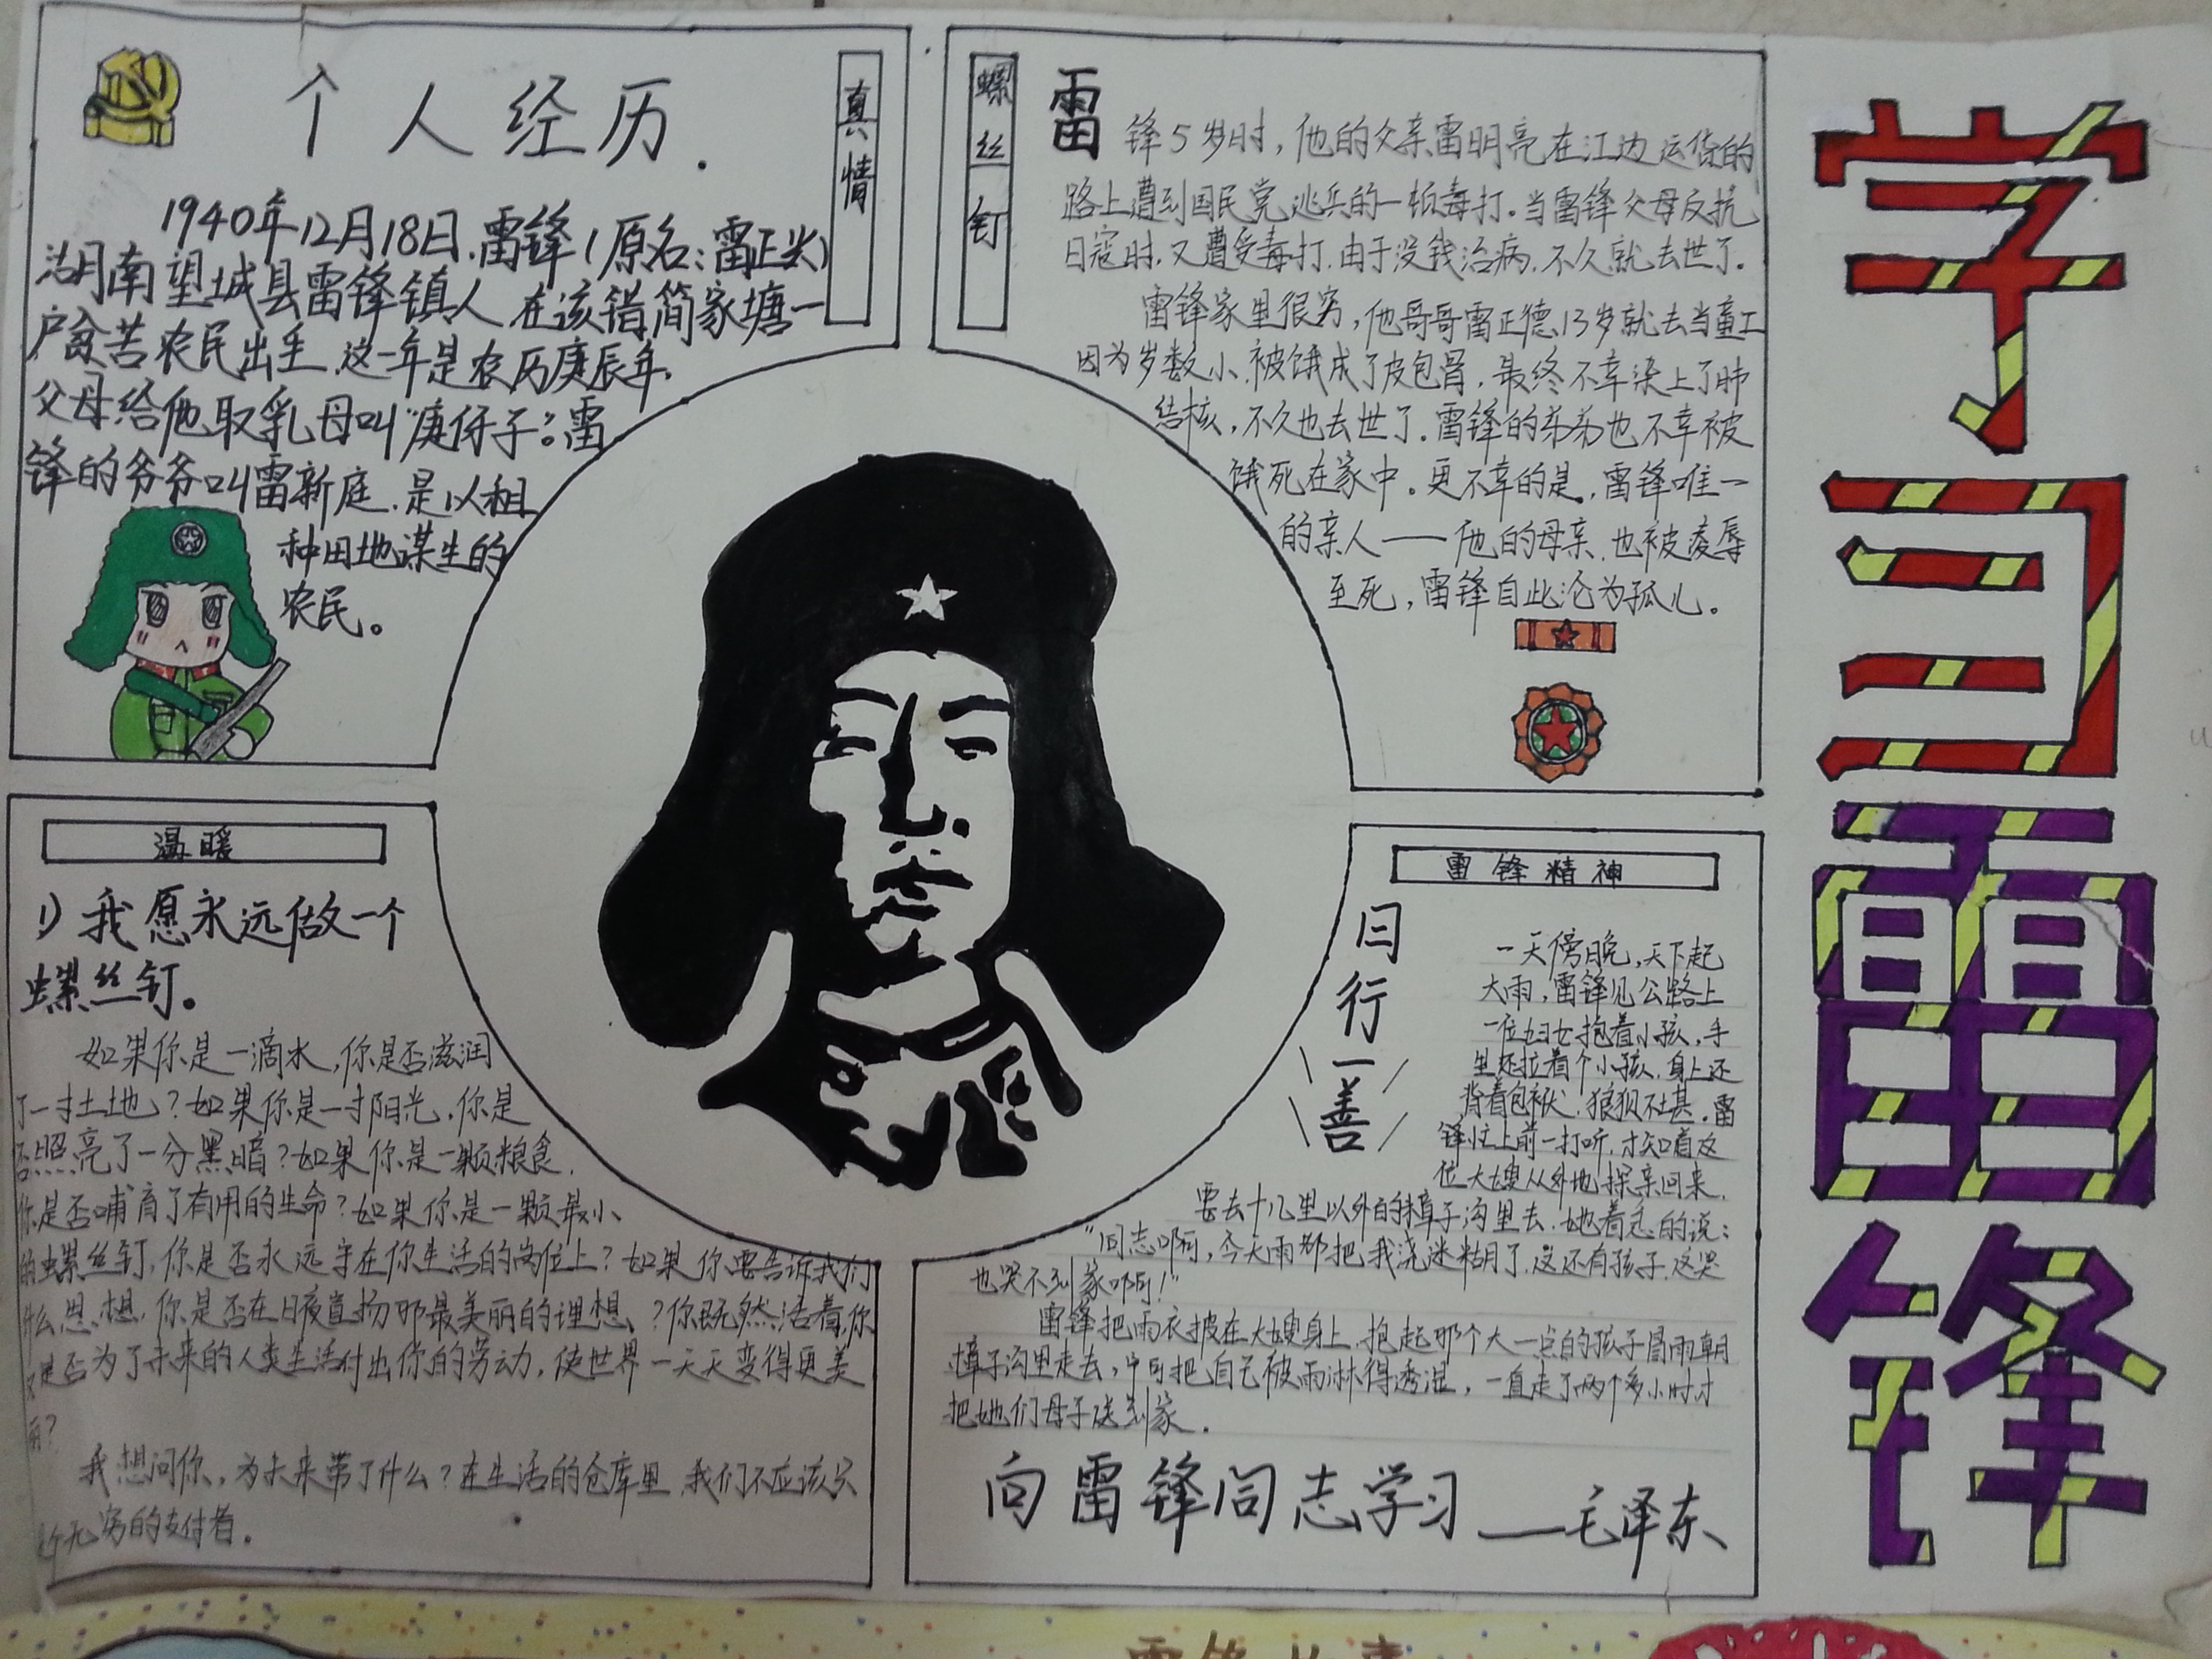 个人经历.
真情
1940年12月18日,雷锋(原名:雷正兴)
湖南望城县雷锋镇人 在该错简家塘一
户贫苦农民出生.这一年是农历庚辰年,
父母给他取乳母叫“庚伢子”。雷
锋的爷爷叫雷新庭.是以租
种田地谋生的
农民。
螺丝钉
雷锋5岁时,他的父亲雷明亮在江边运货的
路上遭到国民党逃兵的一顿毒打.当雷锋父母反抗
日寇时.又遭受毒打.由于没钱治病.不久就去世了.
雷锋家里很穷,他哥哥雷正德,13岁就去当童工
因为岁数小.被饿成了皮包骨.最终不幸染上了肺
结核,不久也去世了.雷锋的弟弟也不幸被
饿死在家中.更不幸的是,雷锋唯一
的亲人——他的母亲.也被凌辱
至死,雷锋自此沦为孤儿.
温暖
1) 我愿永远做一个
螺丝钉。
如果你是一滴水,你是否滋润
了一寸土地?如果你是一寸阳光.你是
否照亮了一分黑暗?如果你是一颗粮食.
你是否哺育了有用的生命?如果你是一颗最小
的螺丝钉,你是否永远守在你生活的岗位上?如果你要告诉我们
什么思想,你是否在日夜宣扬那最美丽的理想?你既然活着,你
又是否为了未来的人类生活付出你的劳动,使世界一天天变得更美
丽?
我想问你,为未来带了什么?在生活的仓库里.我们不应该只
个无穷的支付者.
雷锋精神
日行一善
一天傍晚,天下起
大雨,雷锋见公路上
一位妇女抱着小孩,手
里还拉着个小孩.身上还
背着包袱.狼狈不堪.雷
锋忙上前一打听.才知道这
位大嫂从外地探亲回来.
要去十几里以外的樟子沟里去.她着急的说:
“同志啊,今天雨都把我浇迷糊了.这还有孩子.这哭
也哭不到家啊!”
雷锋把雨衣披在大嫂身上.抱起那个大一点的孩子冒雨朝
樟子沟里走去,宁可把自己被雨淋得透湿,一直走了两个多小时才
把她们母子送到家.
向雷锋同志学习——毛泽东
学习雷锋